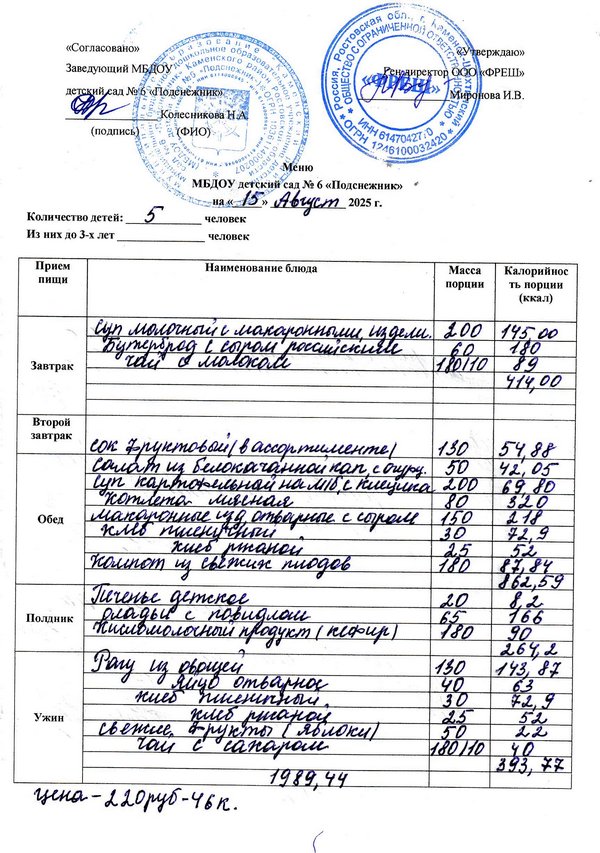 «Согласовано»
«Утверждаю»
Заведующий МБДОУ
Ген.директор ООО «ФРЕШ»
детский сад № 6 «Подснежник»
Миронова И.В.
Колесникова Н.А.
(подпись) (ФИО)
Россия, Ростовская обл., г. Каменск-Шахтинский
ОБЩЕСТВО С ОГРАНИЧЕННОЙ ОТВЕТСТВЕННОСТЬЮ
«ФРЕШ»
ОГРН 1246100032420
Меню
МБДОУ детский сад № 6 «Подснежник»
на « 15 » Август 2025 г.
Количество детей: 5 человек
Из них до 3-х лет ______________ человек
Прием пищи Наименование блюда Масса порции Калорийность порции (ккал)
Завтрак
Суп молочный с макаронными издели. 200 145,00
Бутерброд с сыром российским 60 180
Чай с молоком 180/10 89
414,00
Второй завтрак
сок фруктовый (в ассортименте) 130 54,88
Обед
Салат из белокачанной кап. с огур. 50 42,05
Суп картофельный на м/б, с клецка 200 69,80
Котлета мясная 80 320
макаронные изд отварные с сыром 150 218
хлеб пшеничный 30 72,9
хлеб ржаной 25 52
Компот из свежих плодов 180 87,84
862,59
Полдник
Печенье детское 20 8,2
оладьи с повидлом 65 166
Кисломолочный продукт (кефир) 180 90
264,2
Ужин
Рагу из овощей 130 143,87
Яйцо отварное 40 63
хлеб пшеничный 30 72,9
хлеб ржаной 25 52
свежие фрукты (яблоки) 50 22
Чай с сахаром 180/10 40
393,77
1989,44
цена-220руб-46к.